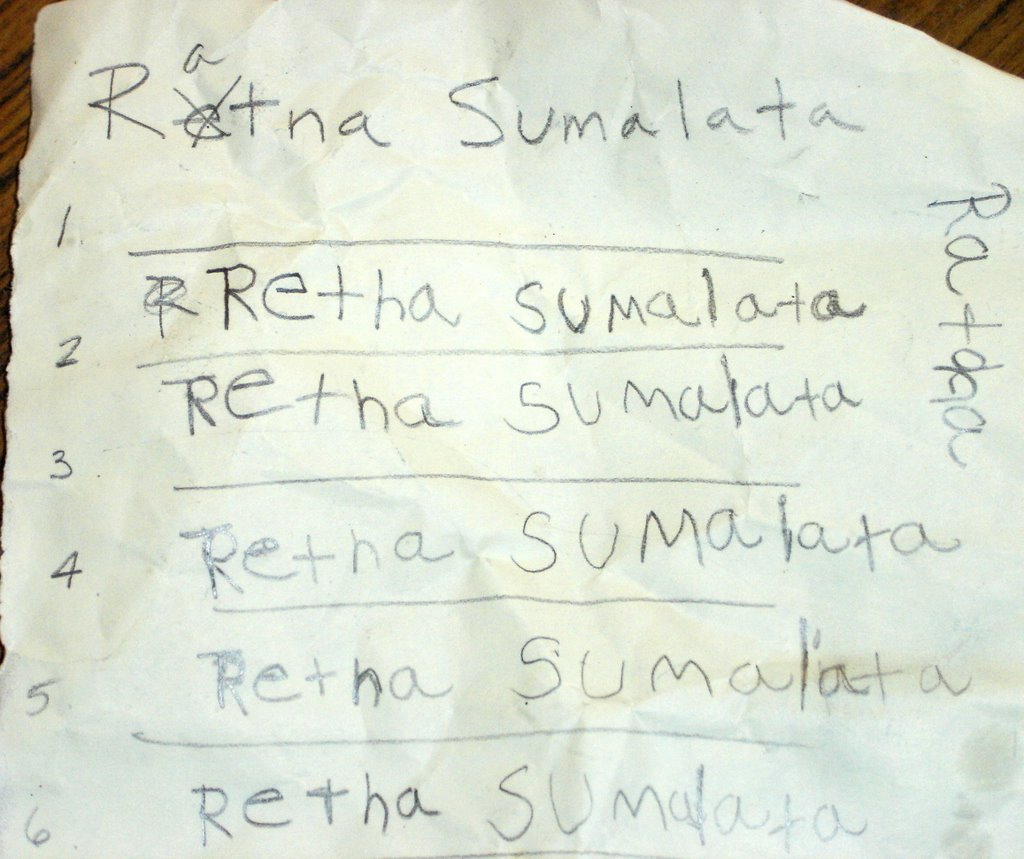 Ratna Sumalata
1.
Retha sumalata
2
Retha sumalata
3
Retha sumalata
4
Retha sumalata
5
Retha sumalata
6